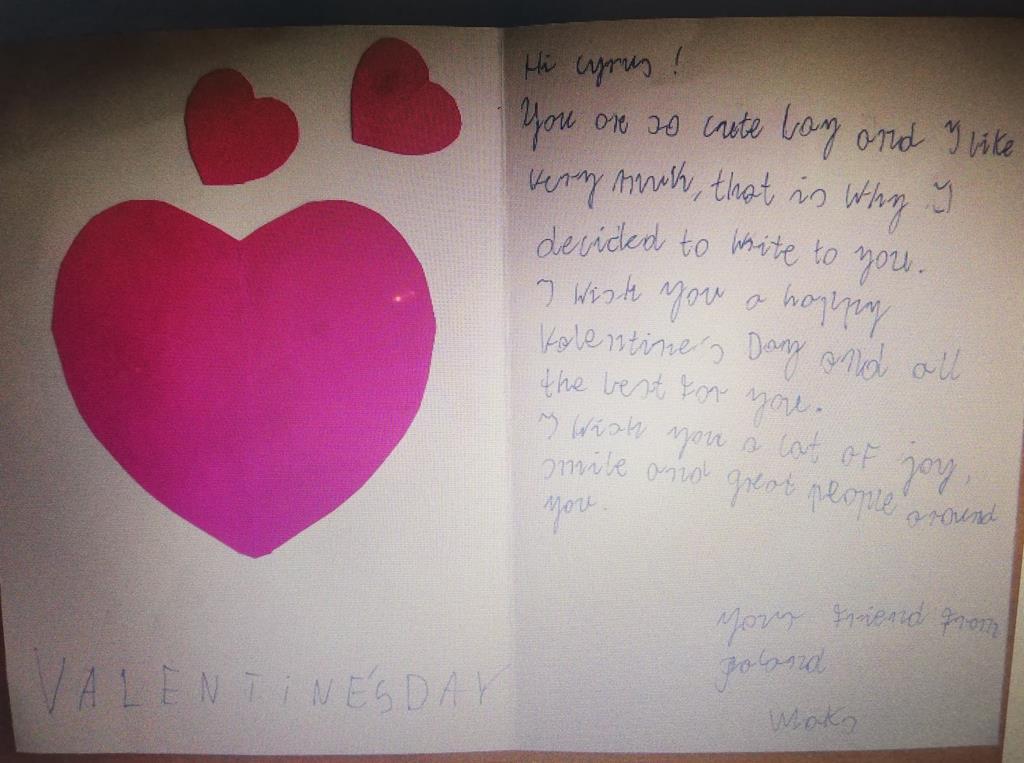 VALENTINE'S DAY
Hi Cyrus!
You are so cute boy and I like
very much, that is why I
decided to write to you.
I wish you a happy
Valentine's Day and all
the best for you.
I wish you a lot of joy,
smile and great people around
you.
Your friend from
Poland
Maks